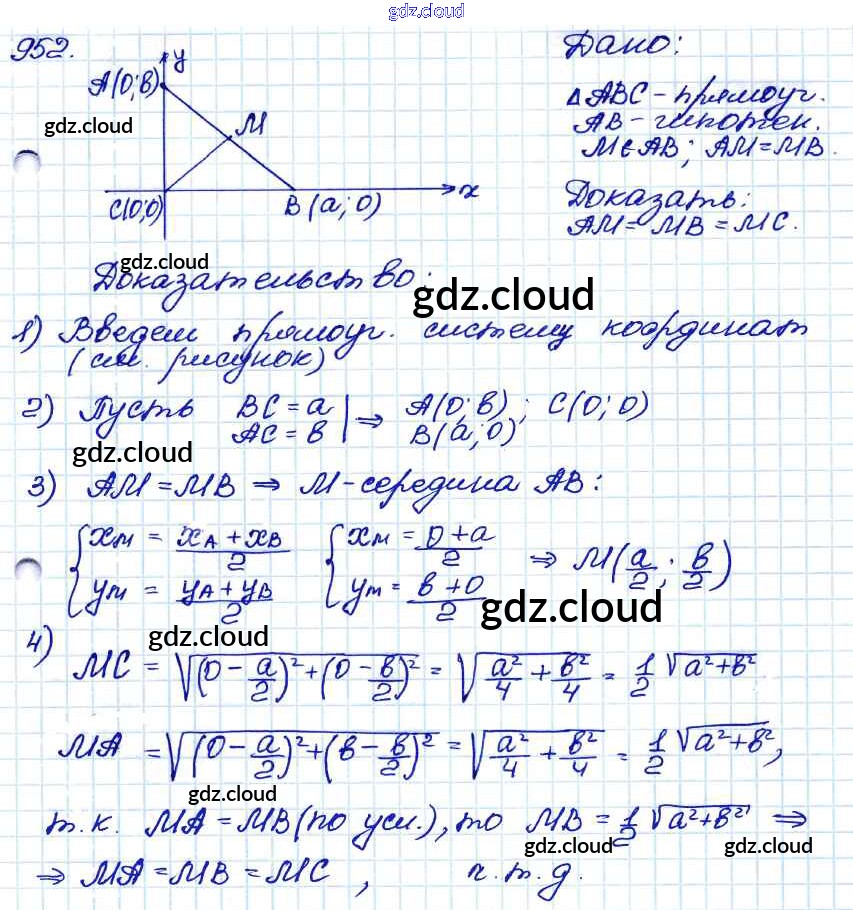 gdz.cloud
952.
y
A(0;в)
gdz.cloud
M
C(0;0)
B(a;0)
x
Дано:
△ABC - прямоуг.
AB - гипотен.
M∈AB; AM=MB.
Доказать:
AM=MB=MC.
gdz.cloud
Доказательство:
gdz.cloud
1) Введем прямоуг. систему координат
(см. рисунок)
2) Пусть BC=a | ⇒ A(0;в); C(0;0)
AC=в | B(a;0)
gdz.cloud
3) AM=MB ⇒ M-середина AB:
{ xм = (xA+xB)/2 { xм = (0+a)/2 ⇒ M(a/2; в/2)
yм = (yA+yB)/2 yм = (в+0)/2
gdz.cloud
gdz.cloud
4)
MC = √((0-a/2)²+(0-в/2)²) = √(a²/4+в²/4) = 1/2 √(a²+в²)
MA = √((0-a/2)²+(в-в/2)²) = √(a²/4+в²/4) = 1/2 √(a²+в²),
gdz.cloud
т.к. MA=MB (по усл.), то MB=1/2 √(a²+в²) ⇒
gdz.cloud gdz.cloud
⇒ MA=MB=MC, ч.т.д.